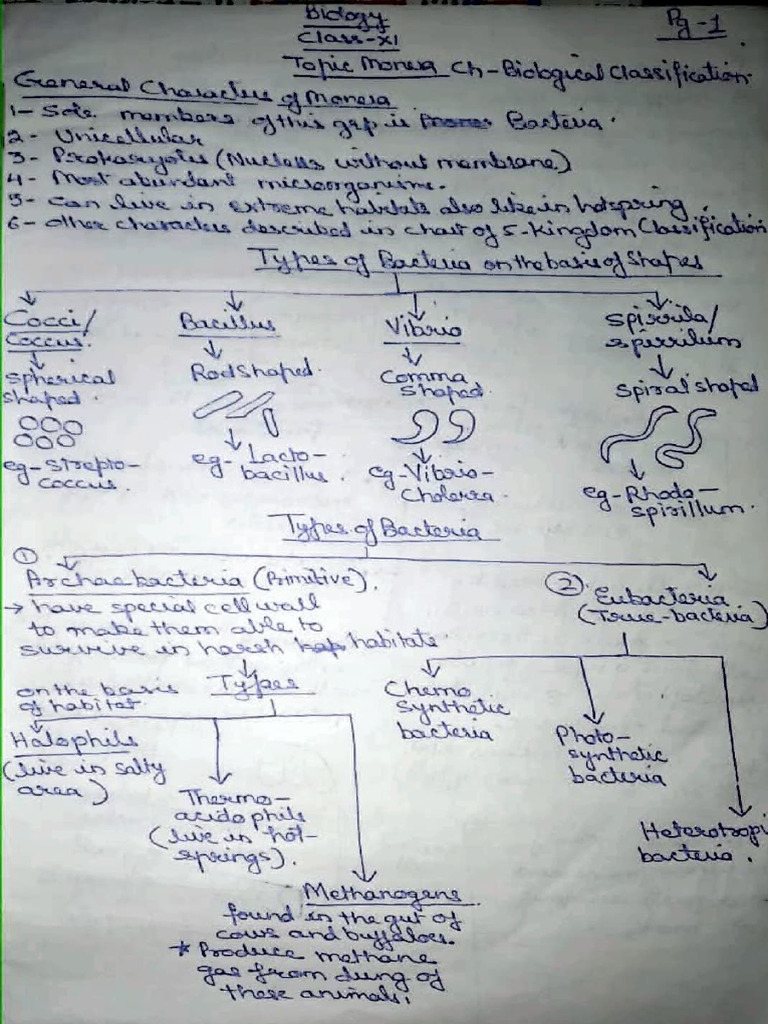 Biology
Pg-1
Class-XI
Topic Monera Ch-Biological Classification.
General Characters of Monera
1- Sole members of this grp is Bacteria.
2- Unicellular
3- Prokaryotes (Nucleus without membrane)
4- Most abundant microorganisms.
5- Can live in extreme habitats also like in hotspring.
6- other characters described in chart of 5-kingdom Classification
Types of Bacteria on the basis of Shapes
Cocci/
Coccus.
Spherical
shaped.
eg- Strepto-
coccus.
Bacillus
Rod shaped.
eg- Lacto-
bacillus.
Vibrio
Comma
shaped.
eg-Vibrio-
Cholerra.
Spirrila/
sperrilum
Spiral shaped
eg-Rhodo-
spirillum.
Types of Bacteria
① Archaebacteria (Primitive).
→ have special cell wall
to make them able to
survive in harsh habitats
on the basis
of habitat
Types
Halophils
(live in salty
area)
Thermo-
acidophils
(live in hot-
springs).
Methanogens
found in the gut of
cows and buffaloes.
* Produce methane
gas from dung of
these animals.
② Eubacteria
(True-bacteria)
Chemo
synthetic
bacteria
Photo-
synthetic
bacteria
Heterotropi
bacteria.